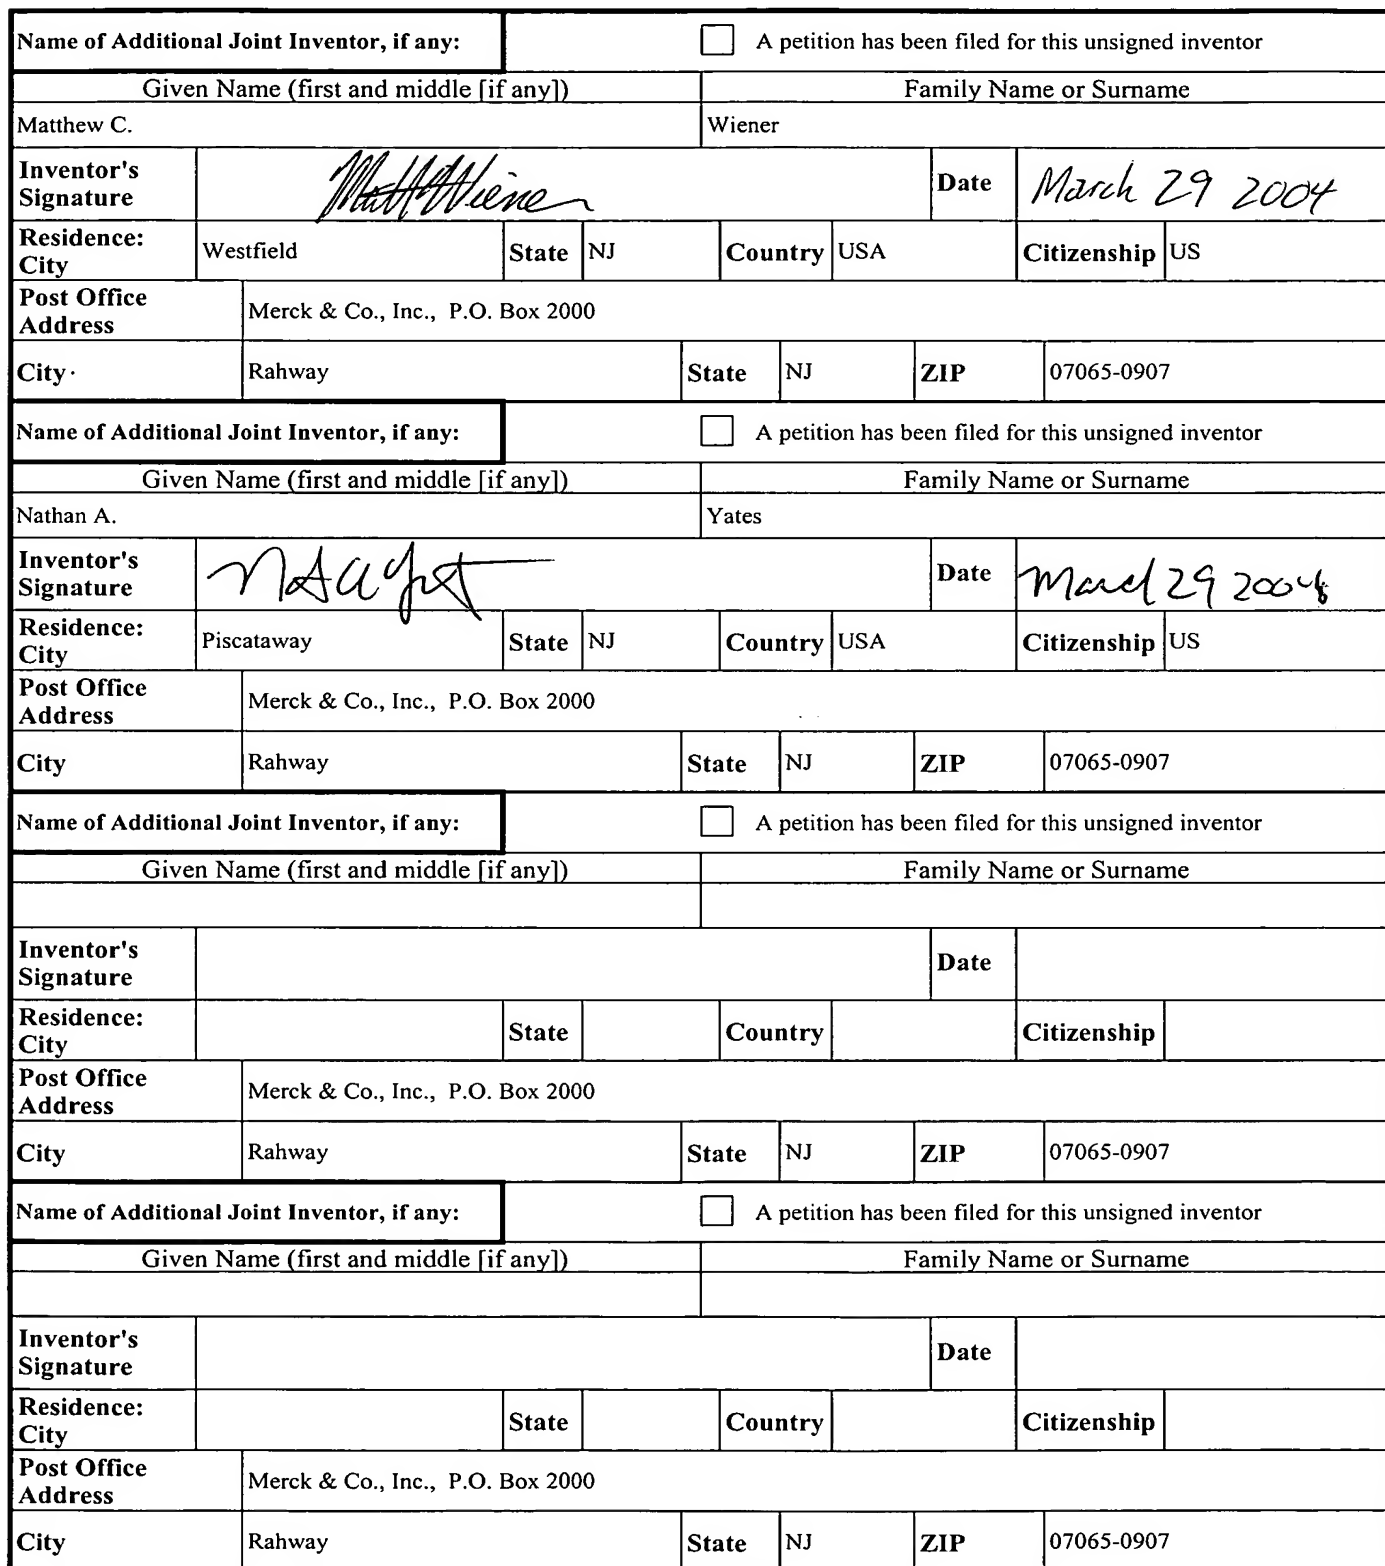 Name of Additional Joint Inventor, if any: A petition has been filed for this unsigned inventor
Given Name (first and middle [if any]) Family Name or Surname
Matthew C. Wiener
Inventor's Signature Matt Wiener Date March 29 2004
Residence: City Westfield State NJ Country USA Citizenship US
Post Office Address Merck & Co., Inc., P.O. Box 2000
City Rahway State NJ ZIP 07065-0907
Name of Additional Joint Inventor, if any: A petition has been filed for this unsigned inventor
Given Name (first and middle [if any]) Family Name or Surname
Nathan A. Yates
Inventor's Signature Date March 29 2004
Residence: City Piscataway State NJ Country USA Citizenship US
Post Office Address Merck & Co., Inc., P.O. Box 2000
City Rahway State NJ ZIP 07065-0907
Name of Additional Joint Inventor, if any: A petition has been filed for this unsigned inventor
Given Name (first and middle [if any]) Family Name or Surname
Inventor's Signature Date
Residence: City State Country Citizenship
Post Office Address Merck & Co., Inc., P.O. Box 2000
City Rahway State NJ ZIP 07065-0907
Name of Additional Joint Inventor, if any: A petition has been filed for this unsigned inventor
Given Name (first and middle [if any]) Family Name or Surname
Inventor's Signature Date
Residence: City State Country Citizenship
Post Office Address Merck & Co., Inc., P.O. Box 2000
City Rahway State NJ ZIP 07065-0907